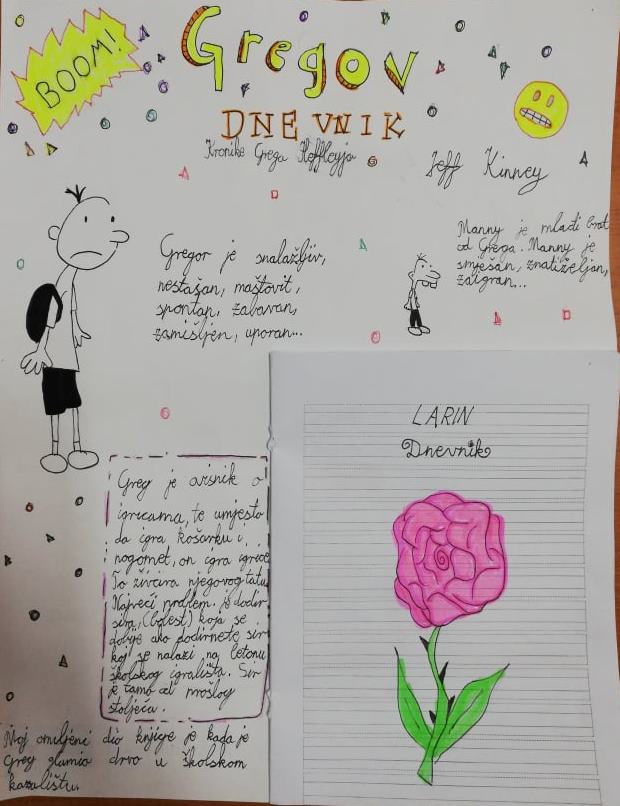 BOOM!
Gregov
DNEVNIK
Kronike Grega Heffleyja
Jeff Kinney
Gregor je snalažljiv,
nestašan, maštovit,
spontan, zabavan,
zamišljen, uporan...
Manny je mlađi brat
od Grega. Manny je
smješan, znatiželjan,
zaigran...
Greg je ovisnik o
igricama, te umjesto
da igra košarku i
nogomet, on igra igrice
To živcira njegovog tatu
Najveći problem je dodir
sira, (bolest) koja se
dobije ako dodirnete sir
koji se nalazi na betonu
školskog igrališta. Sir
je tamo od prošlog
stoljeća.
Moj omiljeni dio knjige je kada je
Greg glumio drvo u školskom
kazalištu.
LARIN
Dnevnik